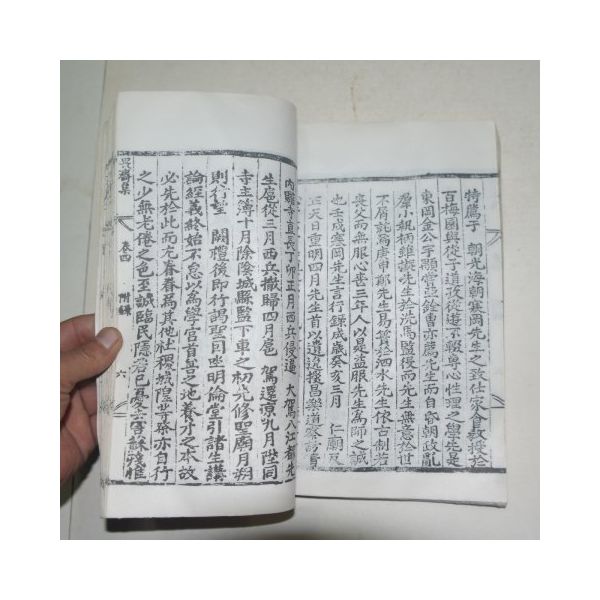 特薦于 朝光海朝寒岡先生之致仕家食敎授於
百梅園與從子道孜從遊不輟專心性理之學先生是
東岡金公宇顒管
群小執柄維歛先生於洗馬監役而先生無意於世
不屑就焉庚申鄭先生易簀於泗水先生依古制若
喪父而無服心喪三年人以是益服先生爲師之誠
也壬戌寒岡先生言行錄成歲癸亥三月 仁廟反
正天日重明四月先生首以遺逸授昌樂道察訪
內贍寺直長丁卯正月西兵侵逼 大駕入江都先
生扈從三月西兵撤歸四月扈 駕還京九月陞同
寺主簿十月除陰城縣監下車之初先修聖廟月朔
則行望 闕禮後即行謁聖因坐明倫堂引諸生講
論經義終始不怠以爲學宮首善之地養才之本故
必先於此而尤眷眷焉其他社稷城隍等祭亦自行
之少無老倦之色至誠臨民隱若己憂
集 卷四 附錄 六